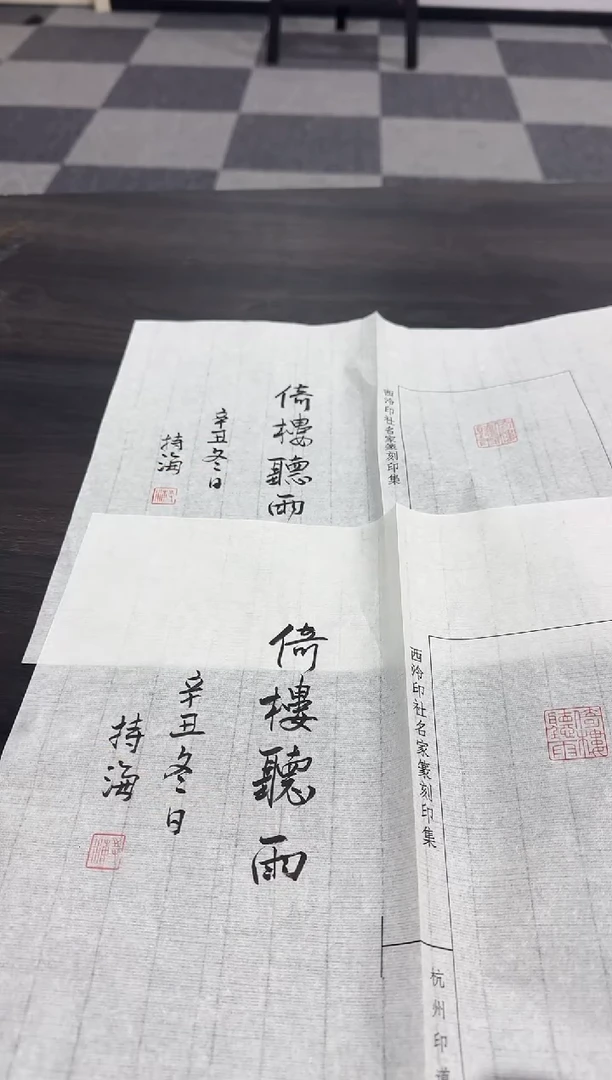 倚樓聽雨
辛丑冬日
持海
西泠印社名家篆刻印集
倚樓聽雨
辛丑冬日
持海
西泠印社名家篆刻印集
杭州印道
倚樓聽雨